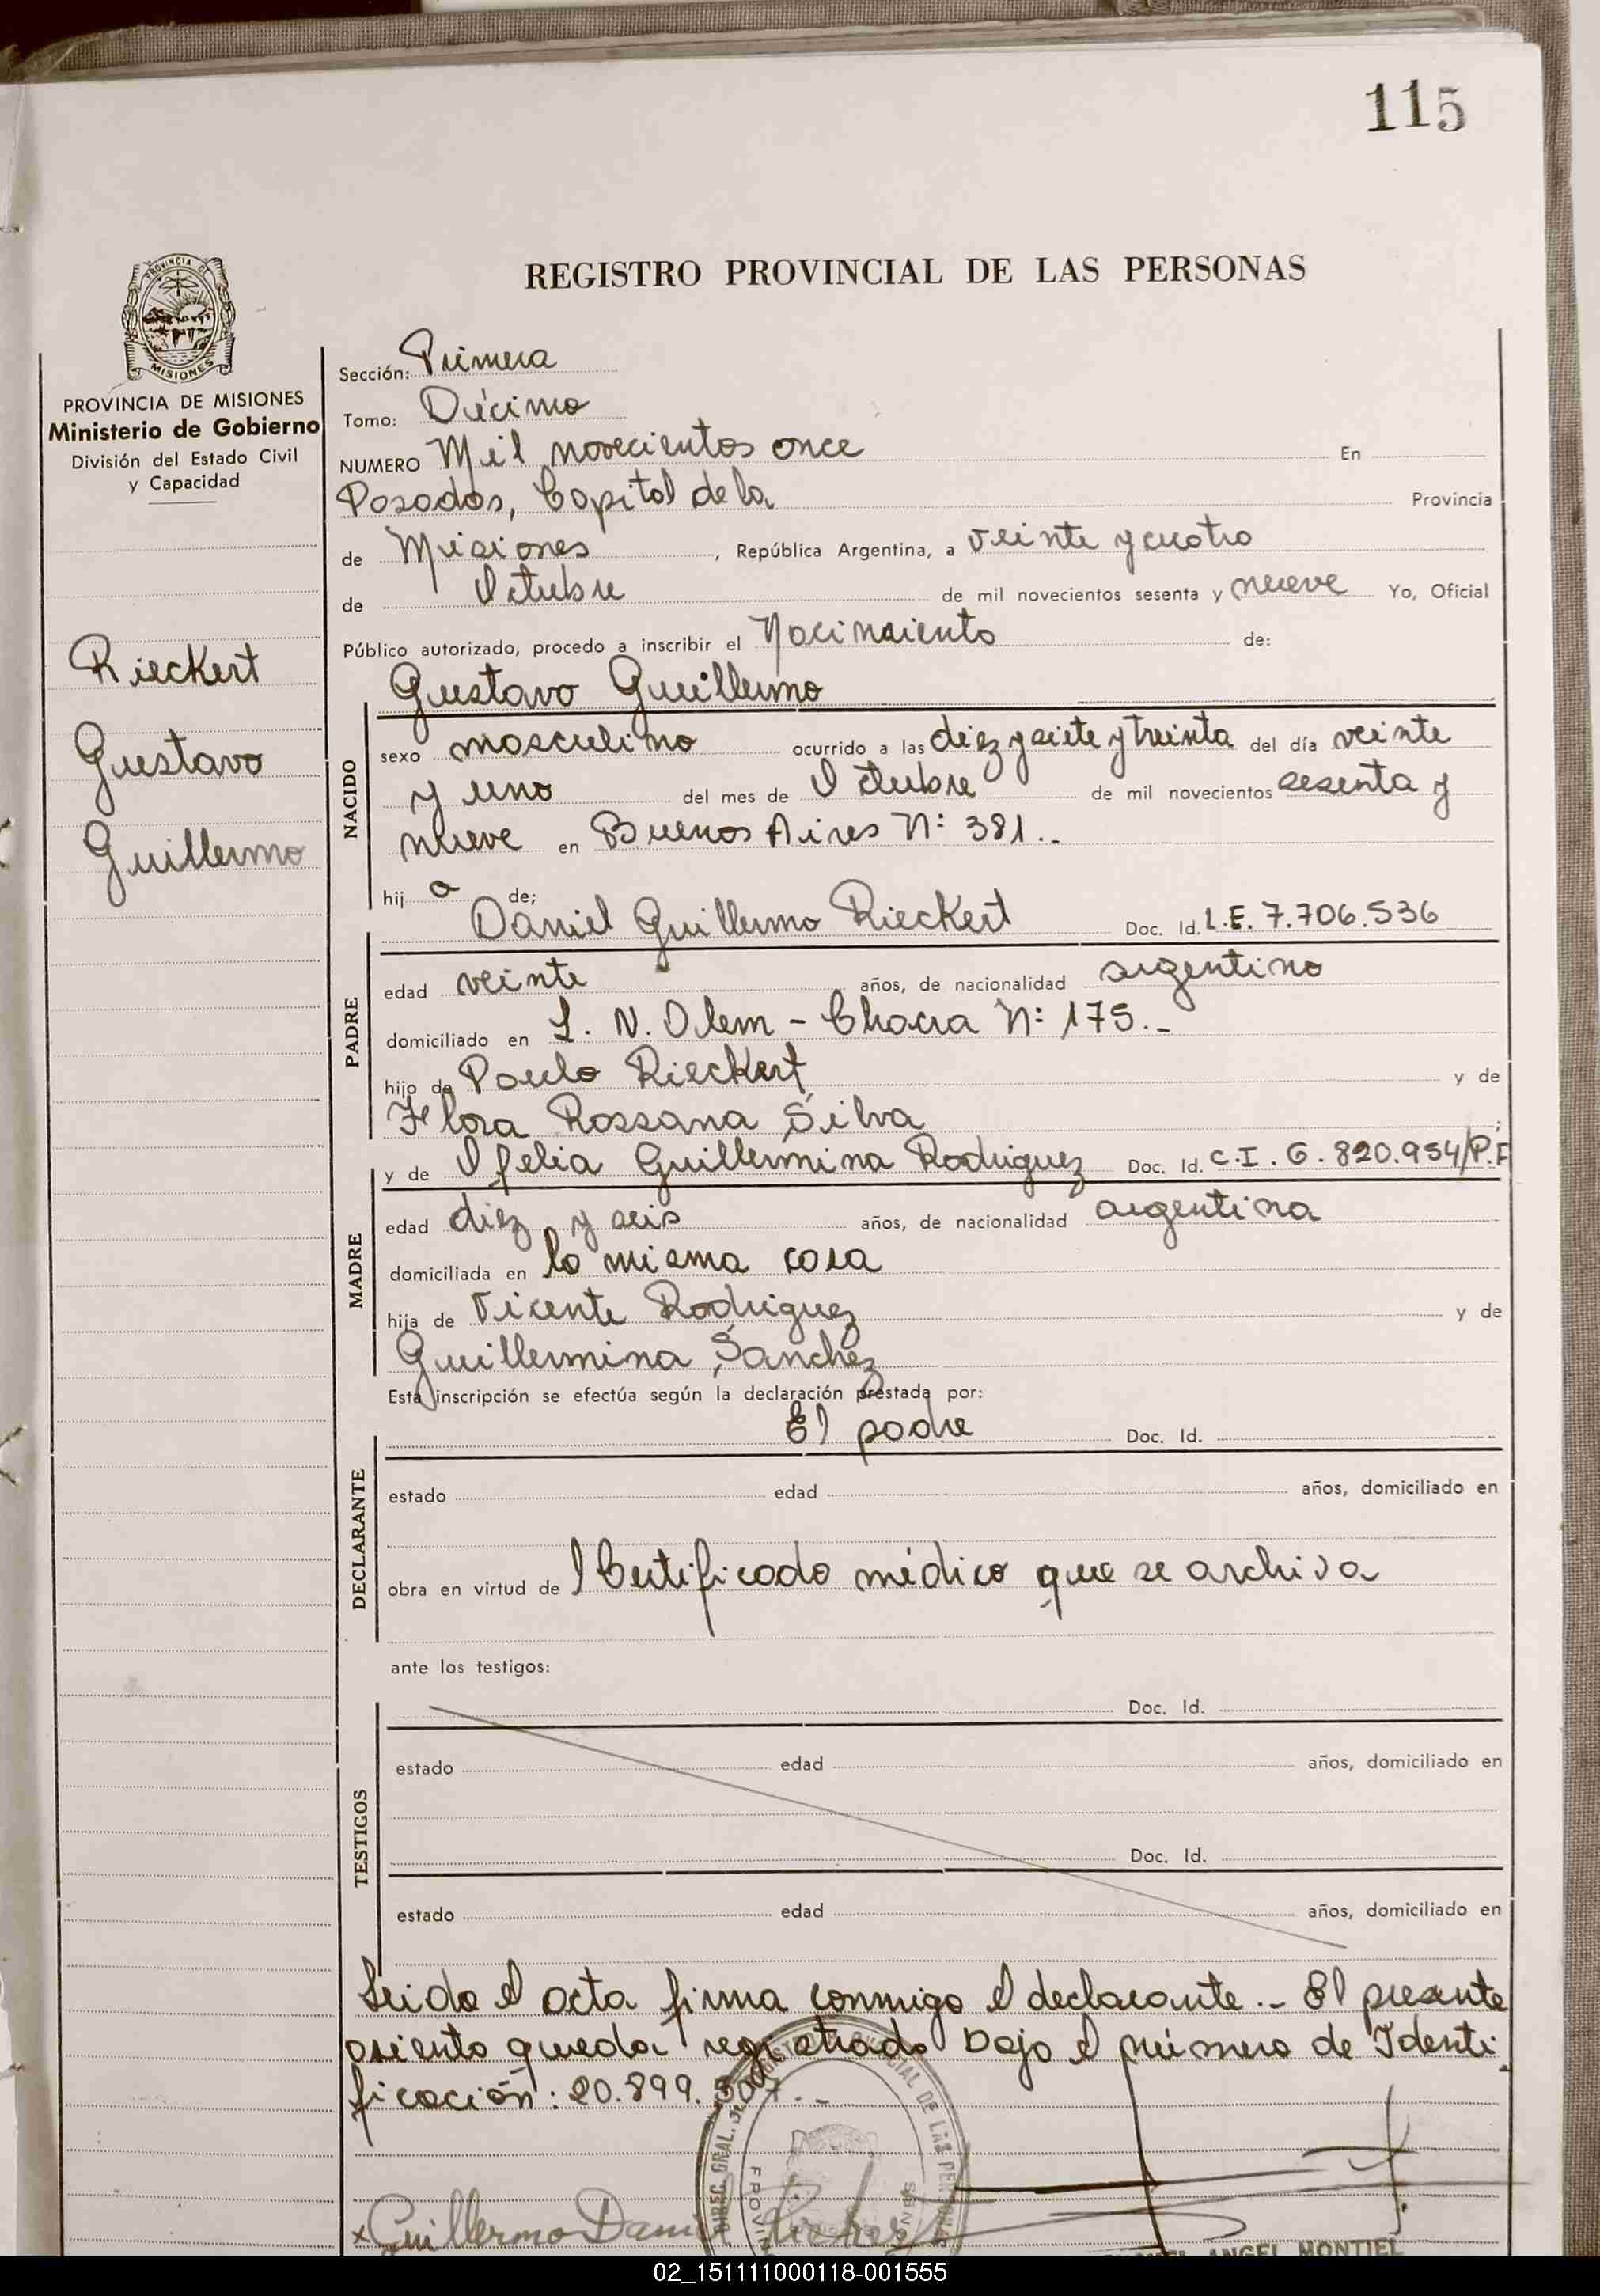 115
REGISTRO PROVINCIAL DE LAS PERSONAS
PROVINCIA DE MISIONES
Ministerio de Gobierno
División del Estado Civil
y Capacidad
Rieckert
Gustavo
Guillermo
Sección: Primera
Tomo: Décimo
NUMERO Mil novecientos once En
Posadas, Capital de la Provincia
de Misiones, República Argentina, a veinte y cuatro
de Octubre de mil novecientos sesenta y nueve Yo, Oficial
Público autorizado, procedo a inscribir el Nacimiento de:
Gustavo Guillermo
NACIDO
sexo masculino ocurrido a las diez y siete y treinta del día veinte
y uno del mes de Octubre de mil novecientos sesenta y
nueve en Buenos Aires N: 381.-
hij o de;
Daniel Guillermo Rieckert Doc. Id. L.E. 7.706.536
PADRE
edad veinte años, de nacionalidad argentino
domiciliado en L. N. Alem - Chacra N: 175.-
hijo de Paulo Rieckert y de
Flora Rossana Silva;
y de Ofelia Guillermina Rodriguez Doc. Id. C.I. 6.820.954/P.F
MADRE
edad diez y seis años, de nacionalidad argentina
domiciliada en la misma casa
hija de Vicente Rodriguez y de
Guillermina Sanchez
Esta inscripción se efectúa según la declaración prestada por:
El padre Doc. Id.
DECLARANTE
estado edad años, domiciliado en
obra en virtud de l Certificado médico que se archiva
ante los testigos:
Doc. Id.
TESTIGOS
estado edad años, domiciliado en
Doc. Id.
estado edad años, domiciliado en
Leida el acta firma conmigo el declarante.- El presente
asiento queda registrado bajo el número de Identi-
ficación: 20.899.507.-
Guillermo Daniel Rieckert
ANGEL MONTIEL
02_151111000118-001555